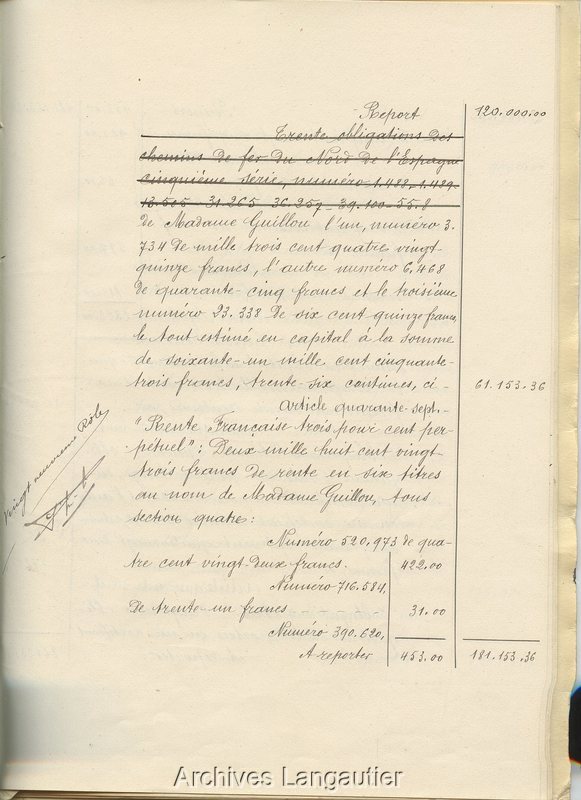 Report 120.000.00
Trente obligations des
chemins de fer du Nord de l'Espagne
cinquième série, numéro 1.488_1.489_
31.265 36.257_39.100_55.8
de Madame Guillou l'un, numéro 3.
734 de mille trois cent quatre vingt
quinze francs, l'autre numéro 6.468
de quarante-cinq francs et le troisième
numéro 23.338 de six cent quinze francs,
le tout estimé en capital à la somme
de soixante-un mille cent cinquante-
trois francs, trente-six centimes, ci- 61.153.36
Article quarante-sept.-
"Rente Française trois pour cent per-
pétuel": Deux mille huit cent vingt-
trois francs de rente en six titres
au nom de Madame Guillou, tous
section quatre:
Numéro 520.973 de qua-
tre cent vingt-deux francs. 422.00
Numéro 716.584,
de trente-un francs - - - - - 31.00
Numéro 390.620,
A reporter 453.00 181.153.36
Vingt neuvième Rôle
Archives Langautier